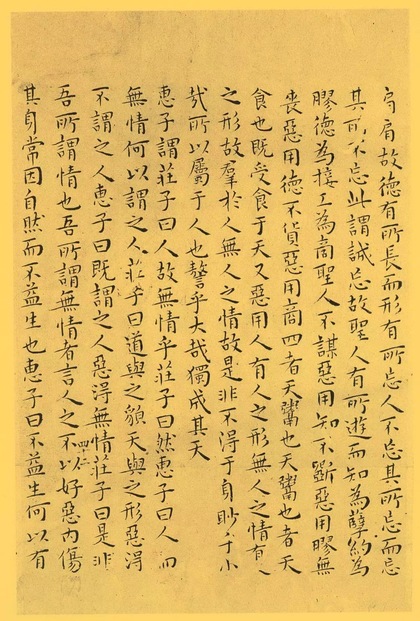 肩故德有所長而形有所忘人不忘其所忘而忘
其所不忘此謂誠忘故聖人有所遊而知為孽約為
膠德為接工為商聖人不謀惡用知不斲惡用膠無
喪惡用德不貨惡用商四者天鬻也天鬻也者天
食也既受食于天又惡用人有人之形無人之情有人
之形故羣於人無人之情故是非不得于身眇乎小
哉所以屬于人也謷乎大哉獨成其天
惠子謂莊子曰人故無情乎莊子曰然惠子曰人而
無情何以謂之人莊子曰道與之䫉天與之形惡得
不謂之人惠子曰既謂之人惡得無情莊子曰是非
吾所謂情也吾所謂無情者言人之不以好惡内傷
其身常因自然而不益生也惠子曰不益生何以有